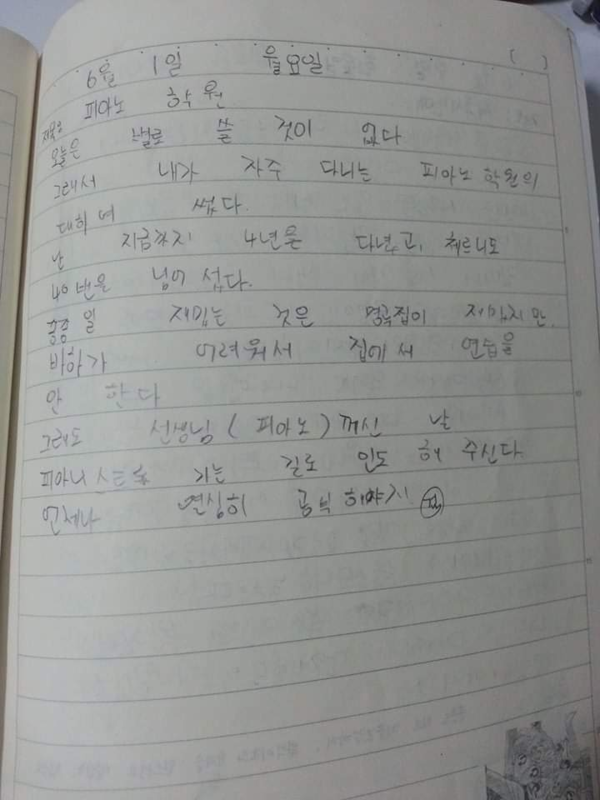 6월 1일 월요일 ( )
제목: 피아노 학원
오늘은 별로 쓸 것이 없다
그래서 내가 자주 다니는 피아노 학원의
대해 여 썼다.
난 지금까지 4년을 다녔고, 체르니도
40번을 넘어 섰다.
재밌는 것은 명곡집이 재밌지만
바하가 어려워서 집에서 연습을
안 한다
그래도 선생님 (피아노) 께선 날
피아니스트 가는 길로 인도 해 주신다
언제나 열심히 공부 해야지.